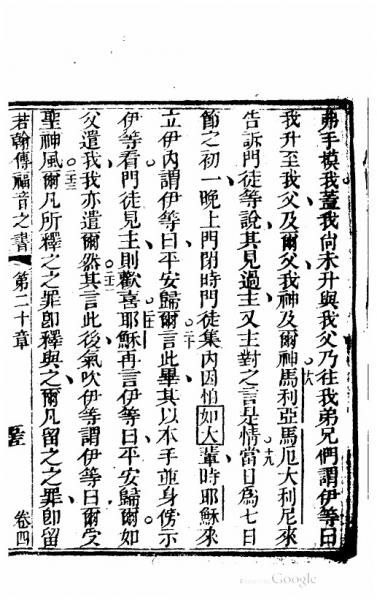 弟手摸我蓋我尚未升與我父乃往我弟兄們謂伊等曰
我升至我父及爾父我神及爾神馬利亞馬厄大利尼來
十八
告訴門徒等說其見過主又主對之言是情當日為七日
十九
節之初一晚上門閉時門徒集內因怕如大輩時耶穌來
立伊內謂伊等曰平安歸爾言此畢其以本手並身傍示
二十
伊等看門徒見主則歡喜耶穌再言伊等曰平安歸爾如
二一
父遣我我亦遣爾然其言此後氣吹伊等謂伊等曰爾受
二二
聖神風爾凡所釋之之罪卽釋與之爾凡留之之罪卽留
二三
若翰傳福音之書 第二十章 卷四
Google